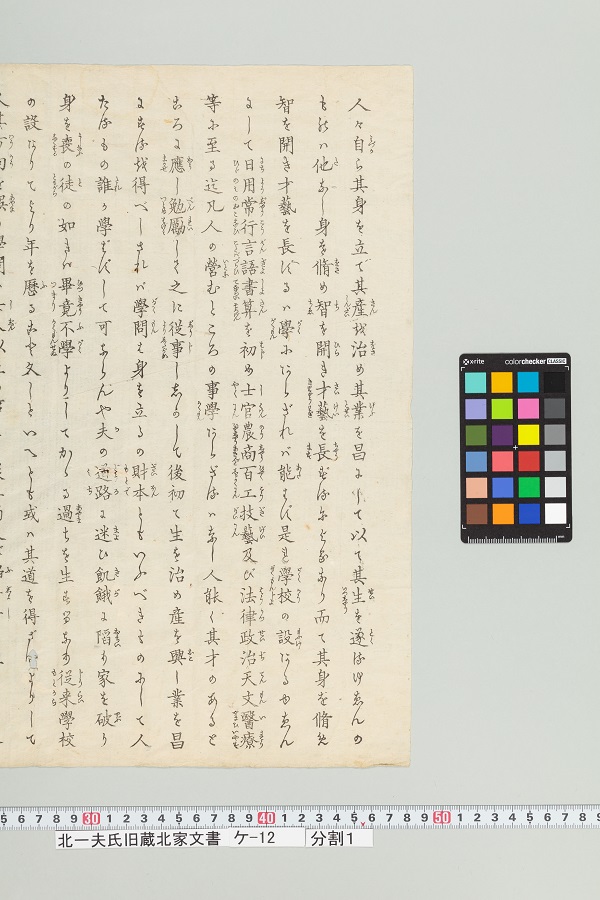 人々自ら其身を立て其産を治め其業を昌にして以て其生を遂るゆゑんの
ものハ他なし身を脩め智を開き才藝を長ずるによるなり而て其身を脩め
智を開き才藝を長ずるハ學にあらざれバ能はず是れ學校の設あるゆゑん
にして日用常行言語書算を初め士官農商百工技藝及び法律政治天文醫療
等に至る迄凡人の營むところの事學あらざるハなし人能く其才のあると
ころに應じ勉勵して之に從事ししかして後初て生を治め産を興し業を昌
にするを得べしされバ學問は身を立るの財本ともいふべきものにして人
たるもの誰か學ばずして可ならんや夫の道路に迷ひ飢餓に陷り家を破り
身を喪の徒の如きハ畢竟不學よりしてかゝる過ちを生ずるなり從来學校
の設ありてより年を歴ること久しといへども或ハ其道を得ざるよりして
x-rite colorchecker CLASSIC
5 6 7 8 9 30 1 2 3 4 5 6 7 8 9 40 1 2 3 4 5 6 7 8 9 50 1 2 3 4 5 6 7 8
北一夫氏旧蔵北家文書 ケ-12 分割1